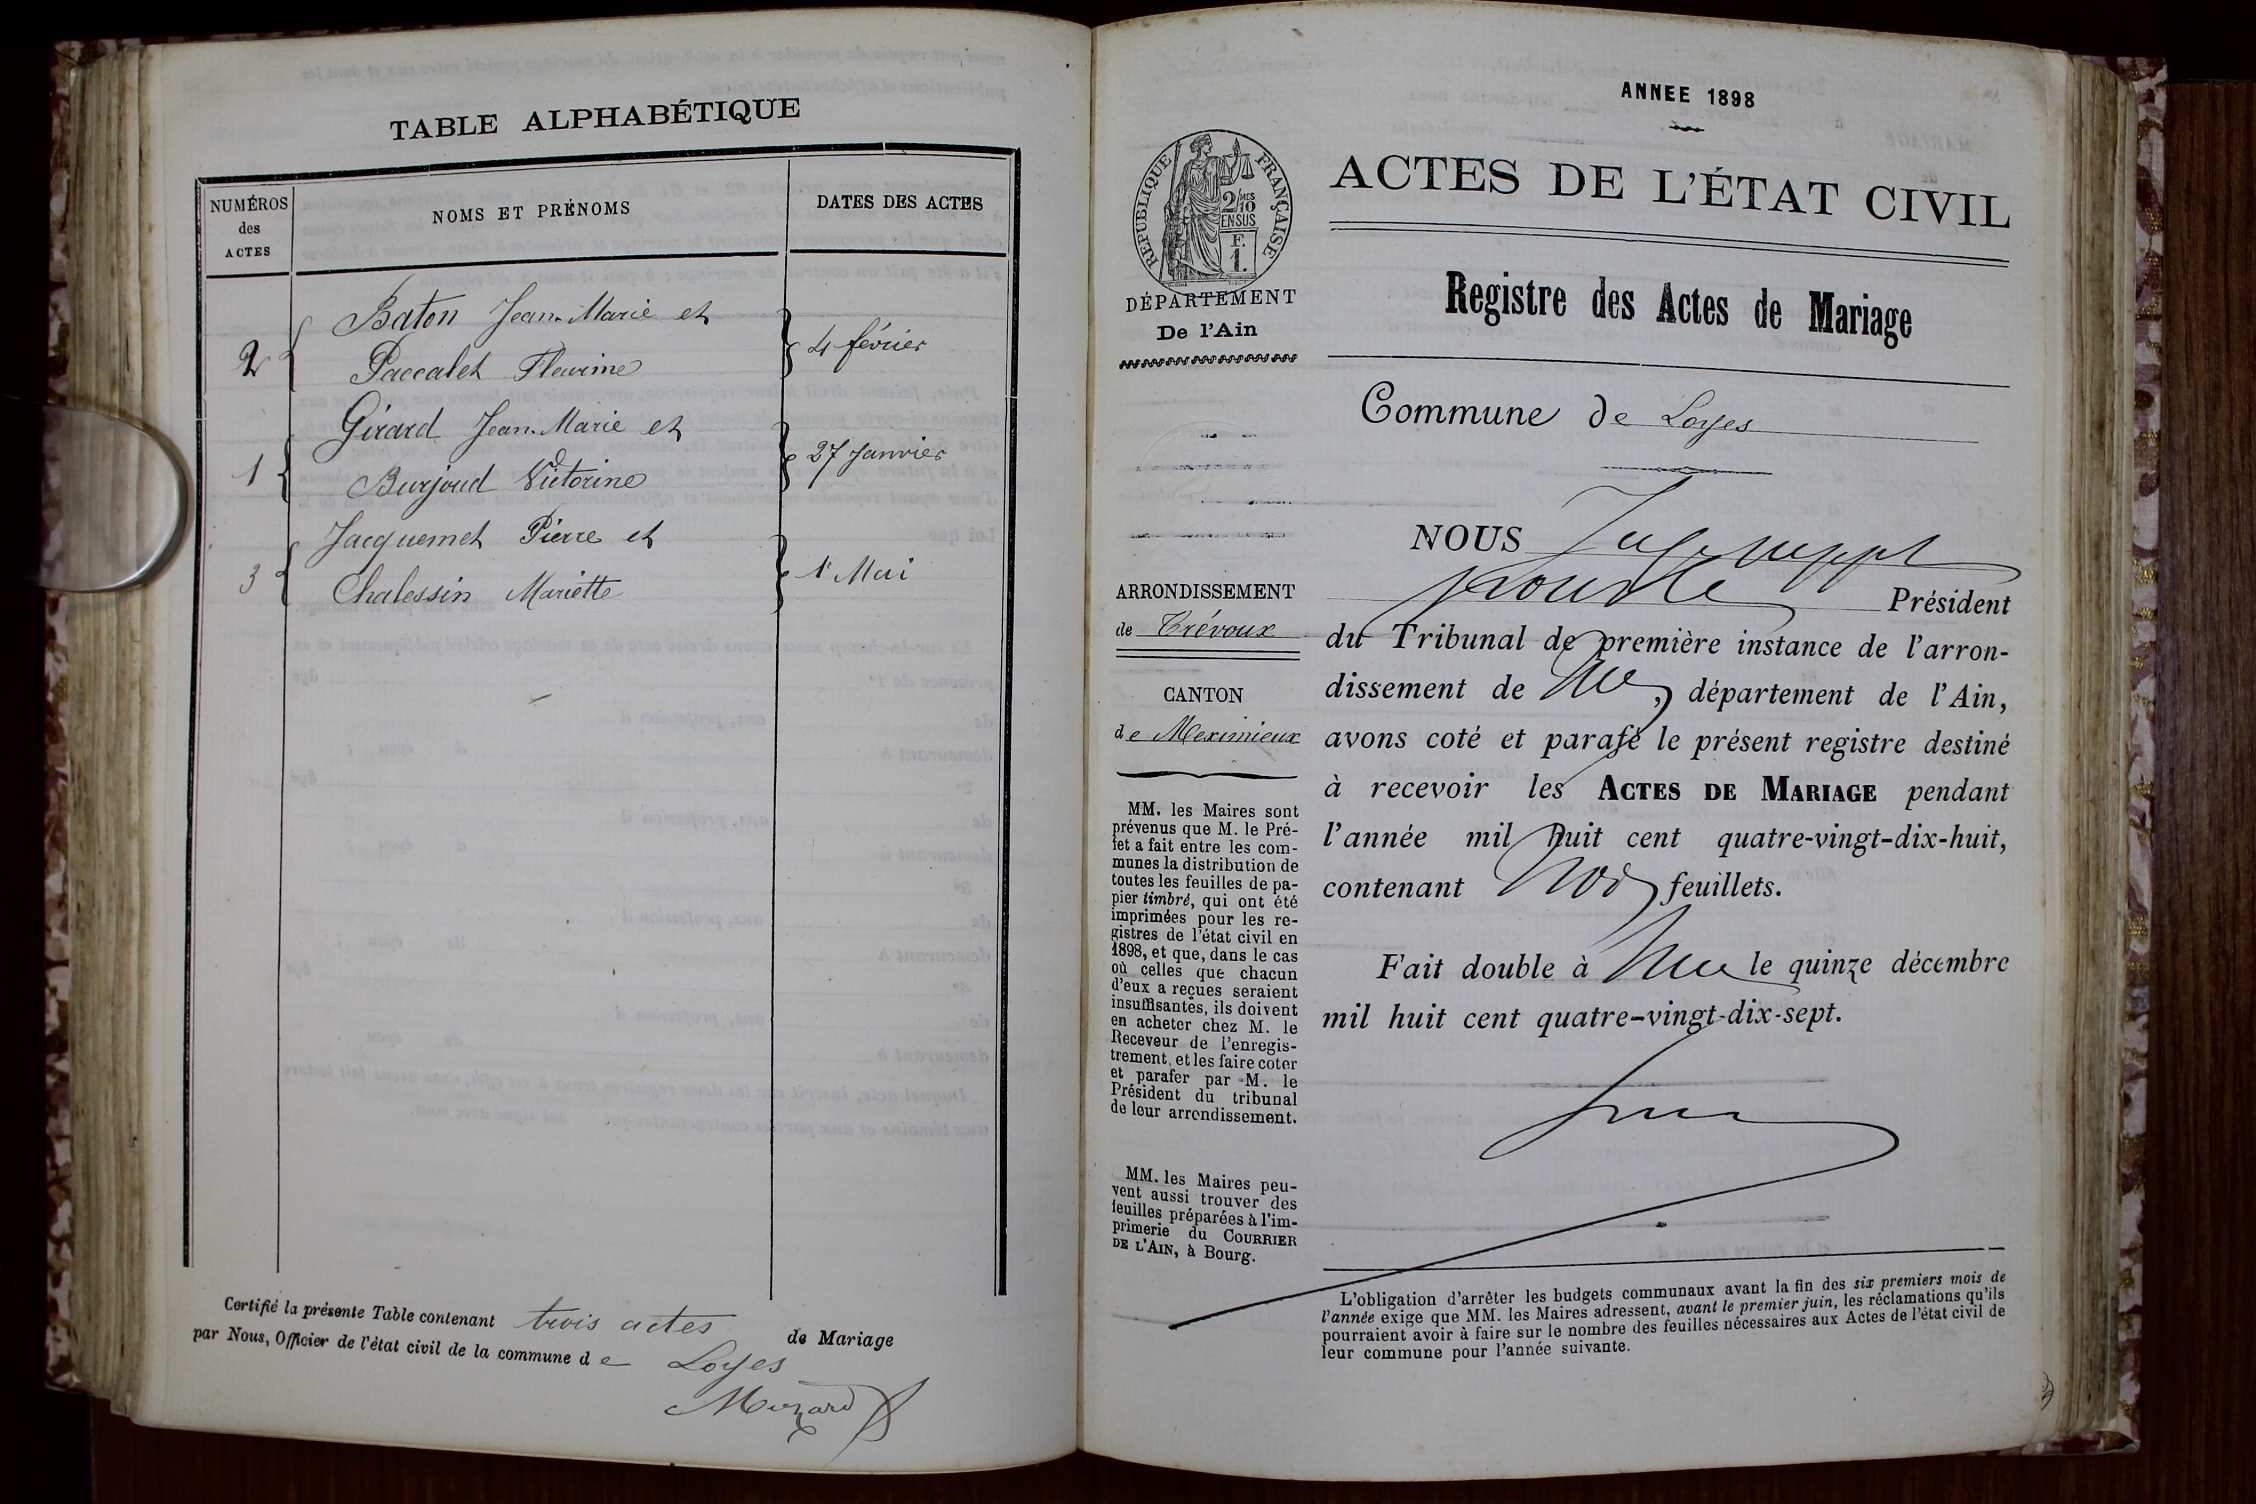 TABLE ALPHABÉTIQUE
NUMÉROS
des
ACTES
NOMS ET PRÉNOMS
DATES DES ACTES
Baton Jean-Marie et
2
Paccalet Fleurine
4 février
Girard Jean-Marie et
1
Burjoud Victorine
27 Janvier
Jacquemet Pierre et
3
Chalessin Mariette
1r Mai
Certifié la présente Table contenant trois actes de Mariage
par Nous, Officier de l'état civil de la commune de Loyes
ANNEE 1898
RÉPUBLIQUE FRANÇAISE
2/10
EN SUS
F.
1.
DÉPARTEMENT
De l'Ain
ARRONDISSEMENT
de Trévoux
CANTON
de Meximieux
MM. les Maires sont
prévenus que M. le Pré-
fet a fait entre les com-
munes la distribution de
toutes les feuilles de pa-
pier timbré, qui ont été
imprimées pour les re-
gistres de l'état civil en
1898, et que, dans le cas
où celles que chacun
d'eux a reçues seraient
insuffisantes, ils doivent
en acheter chez M. le
Receveur de l'enregis-
trement, et les faire coter
et parafer par M. le
Président du tribunal
de leur arrondissement.
MM. les Maires peu-
vent aussi trouver des
feuilles préparées à l'im-
primerie du COURRIER
DE L'AIN, à Bourg.
ACTES DE L'ÉTAT CIVIL
Registre des Actes de Mariage
Commune de Loyes
NOUS
Président
du Tribunal de première instance de l'arron-
dissement de , département de l'Ain,
avons coté et parafé le présent registre destiné
à recevoir les ACTES DE MARIAGE pendant
l'année mil huit cent quatre-vingt-dix-huit,
contenant feuillets.
Fait double à le quinze décembre
mil huit cent quatre-vingt-dix-sept.
L'obligation d'arrêter les budgets communaux avant la fin des six premiers mois de
l'année exige que MM. les Maires adressent, avant le premier juin, les réclamations qu'ils
pourraient avoir à faire sur le nombre des feuilles nécessaires aux Actes de l'état civil de
leur commune pour l'année suivante.